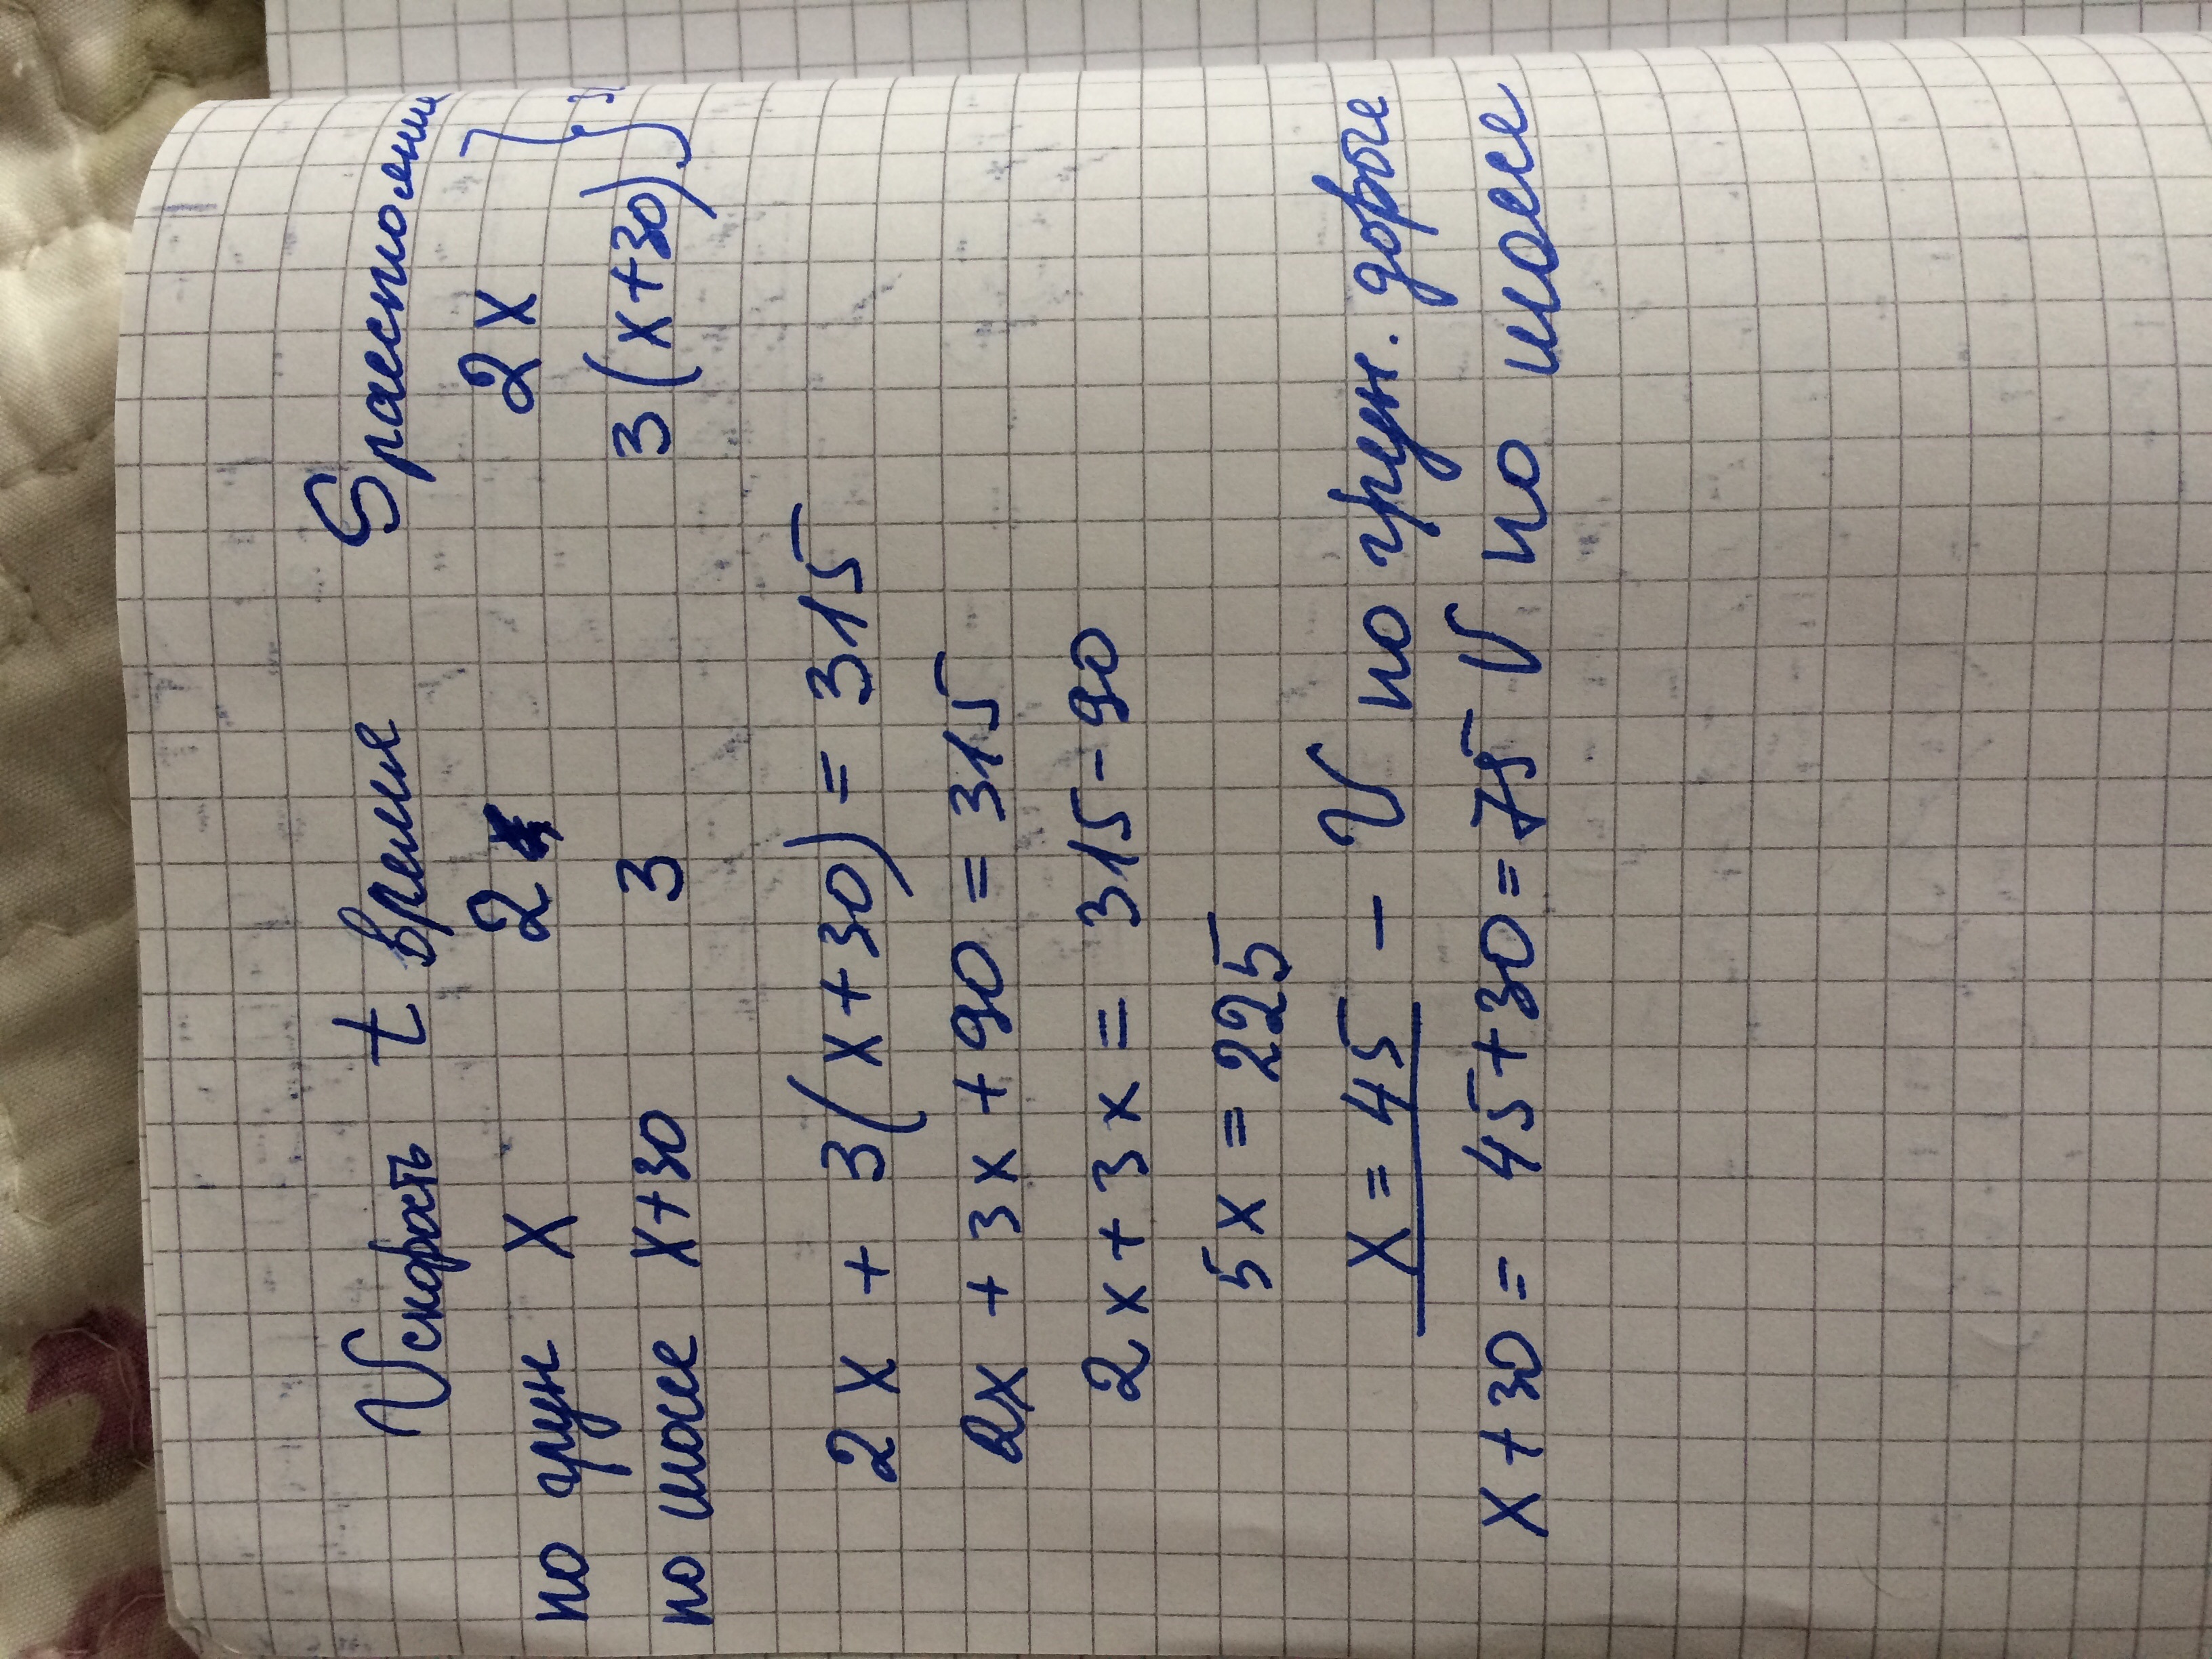 V скорость t время S расстояние
по грун x 2 2x
по шоссе x+30 3 3(x+30)
2x + 3(x+30) = 315
2x + 3x + 90 = 315
2x + 3x = 315 - 90
5x = 225
x = 45 - V по грун. дороге
x + 30 = 45 + 30 = 75 V по шоссе